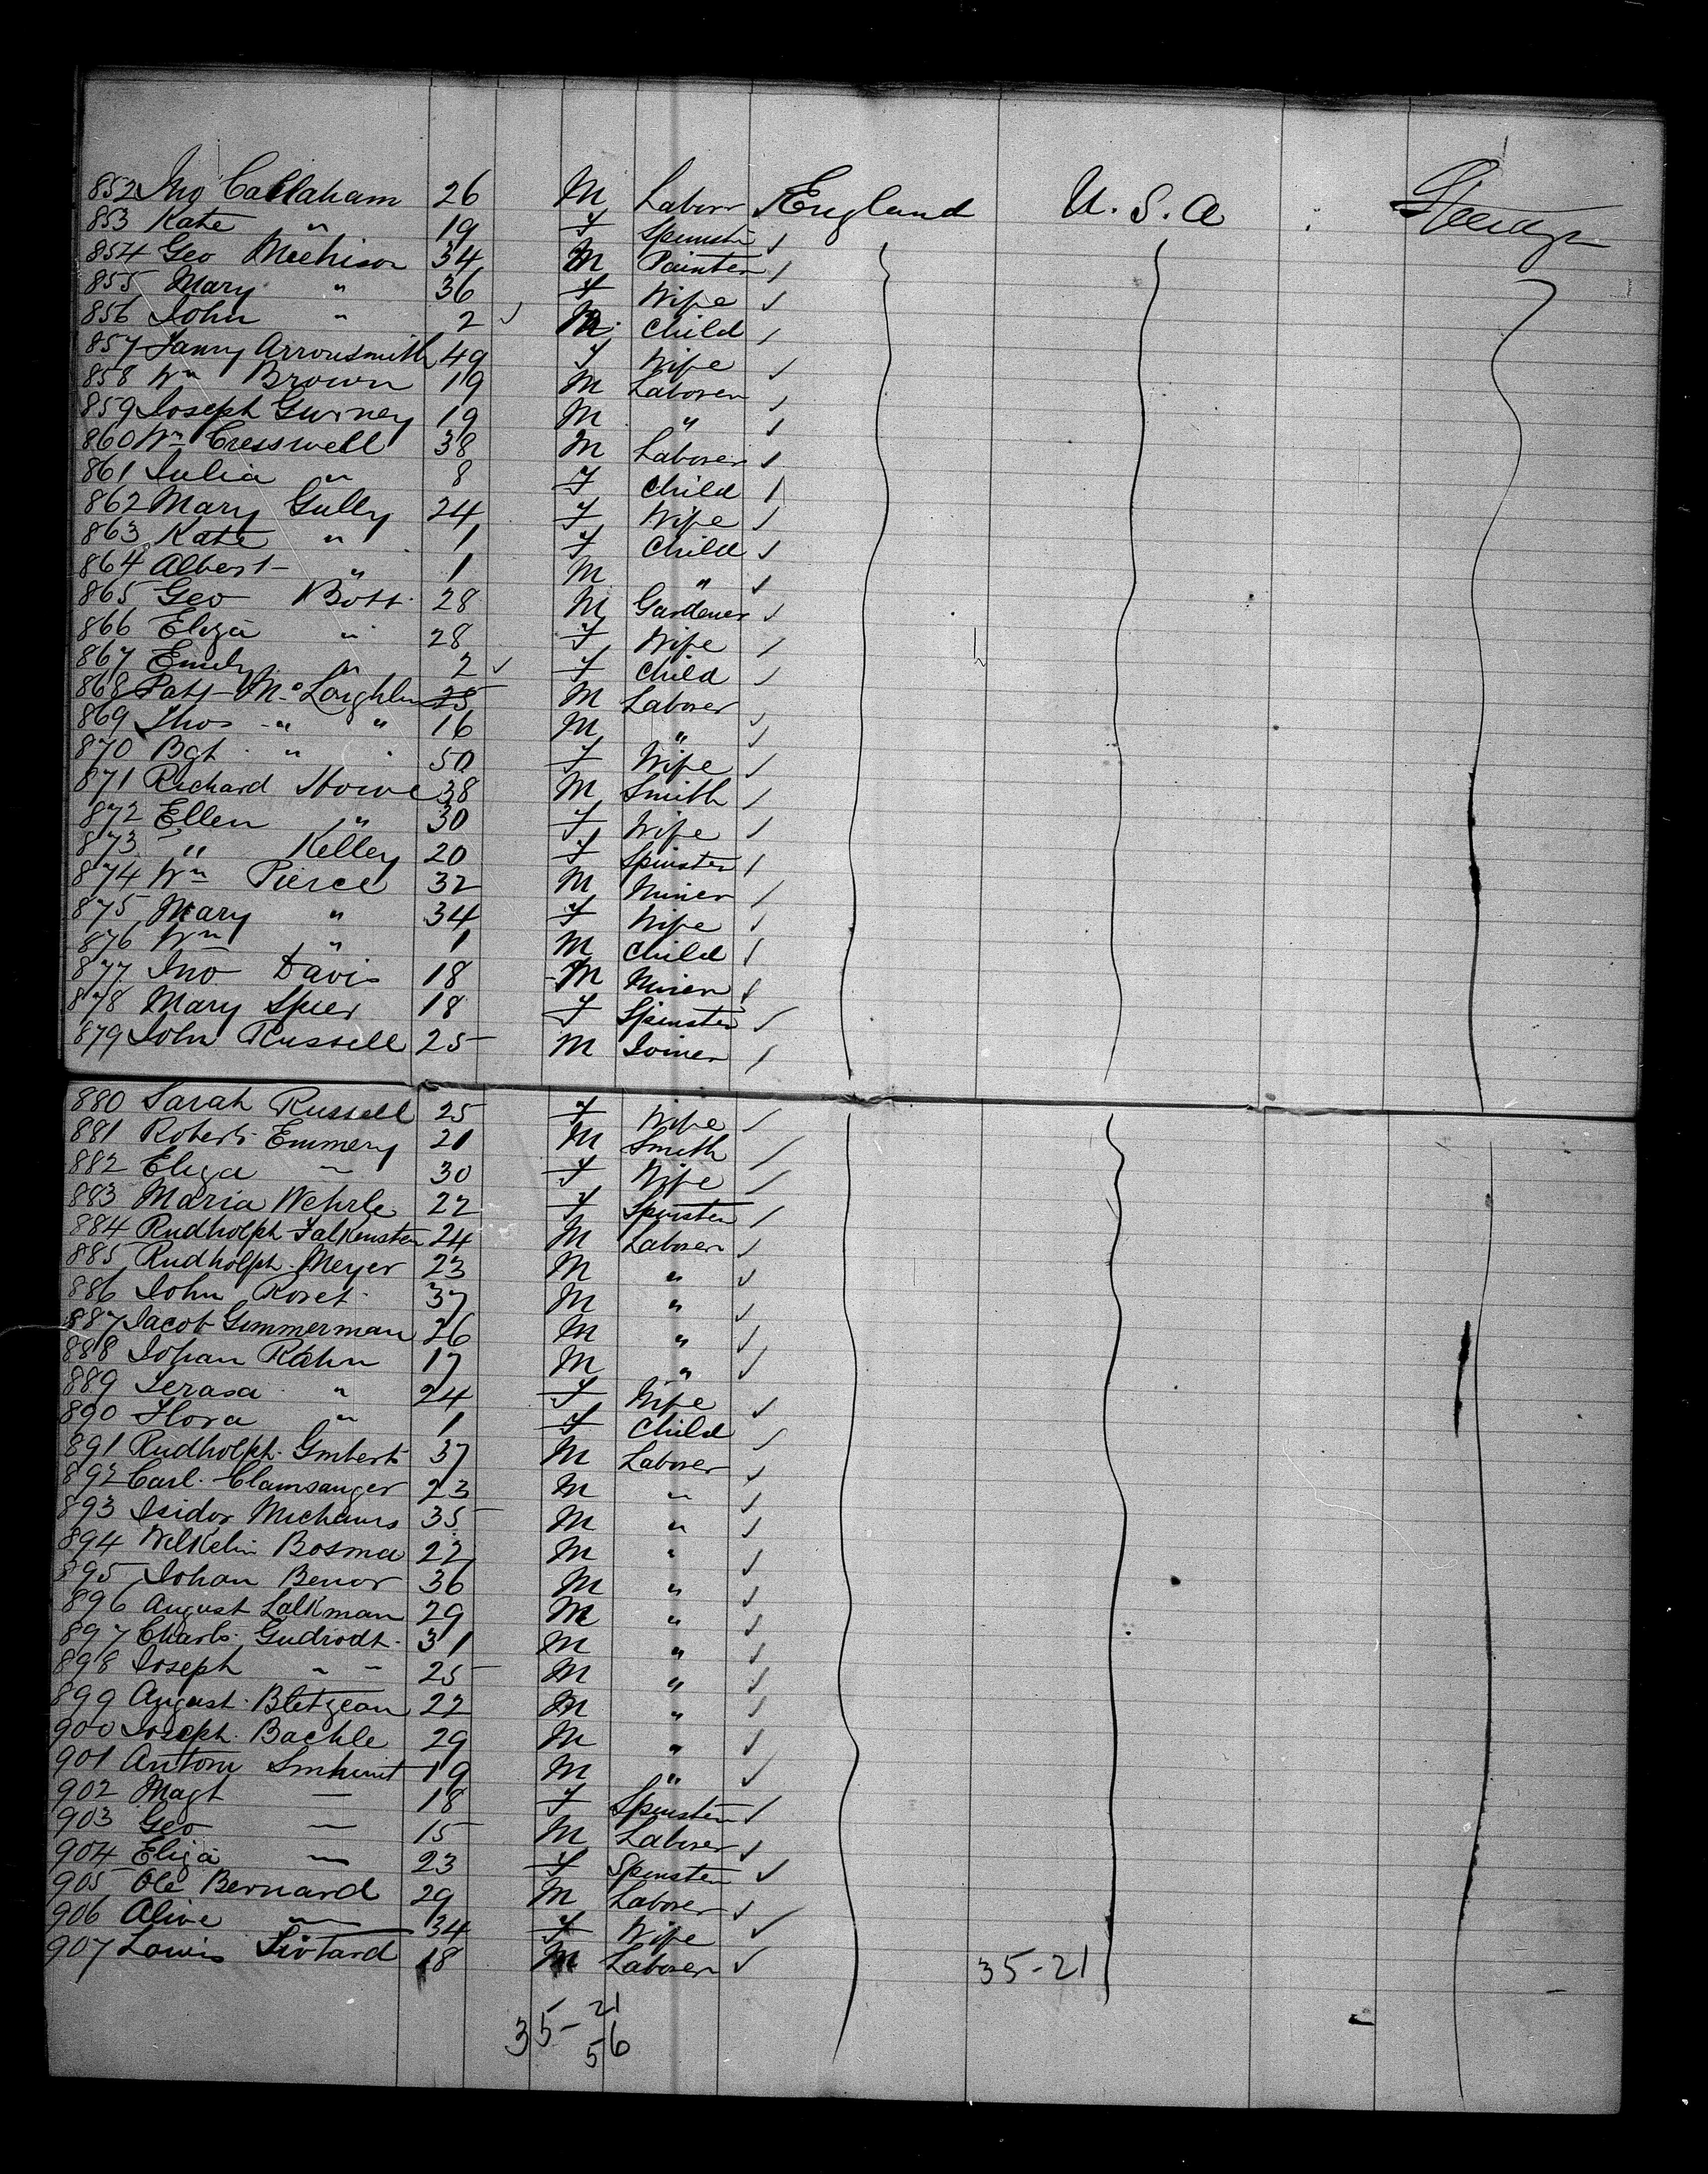 852 Jno Callaham 26 M Laborr England U. S. A Steerage
853 Kate " 19 F Spinstr
854 Geo Mechison 34 M Painter
855 Mary " 36 F Wife
856 John " 2 M Child
857 Fanny Arrowsmith 49 F Wife
858 Wm Brown 19 M Laborer
859 Joseph Gurney 19 M "
860 Wm Cresswell 38 M Laborer
861 Julia " 8 F Child
862 Mary Gully 24 F Wife
863 Kate " 1 F Child
864 Albert " 1 M "
865 Geo Bott 28 M Gardener
866 Eliza " 28 F Wife
867 Emily " 2 F Child
868 Patt McLoughlin 25 M Laborer
869 Thos " " 16 M "
870 Bgt " " 50 F Wife
871 Richard Howe 38 M Smith
872 Ellen " 30 F Wife
873 " Kelley 20 F Spinster
874 Wm Pierce 32 M Miner
875 Mary " 34 F Wife
876 Wm " 1 M Child
877 Jno Davis 18 M Miner
878 Mary Spier 18 F Spinster
879 John Russell 25 M Joiner
880 Sarah Russell 25 F Wife
881 Robert Emmery 21 M Smith
882 Eliza " 30 F Wife
883 Maria Wehrle 22 F Spinster
884 Rudholph Falkensten 24 M Laborer
885 Rudholph Meyer 23 M "
886 John Roset 37 M "
887 Jacob Gimmerman 26 M "
888 Johan Rahn 17 M "
889 Terasa " 24 F Wife
890 Flora " 1 F Child
891 Rudholph Gmbert 37 M Laborer
892 Carl Clamsanger 23 M "
893 Isidor 35 M "
894 Bosma 22 M "
895 Johan Benor 36 M "
896 August Lalkman 29 M "
897 Charls Gudrodt 31 M "
898 Joseph " " 25 M "
899 August Bletzean 22 M "
900 Joseph Bachle 29 M "
901 Antom 19 M "
902 Magt — 18 F Spinster
903 Geo — 15 M Laborer
904 Eliza — 23 F Spinster
905 Ole Bernard 29 M Laborer
906 Alive — 34 F Wife
907 Lowis Siotard 18 M Laborer
35-21
35-21
56